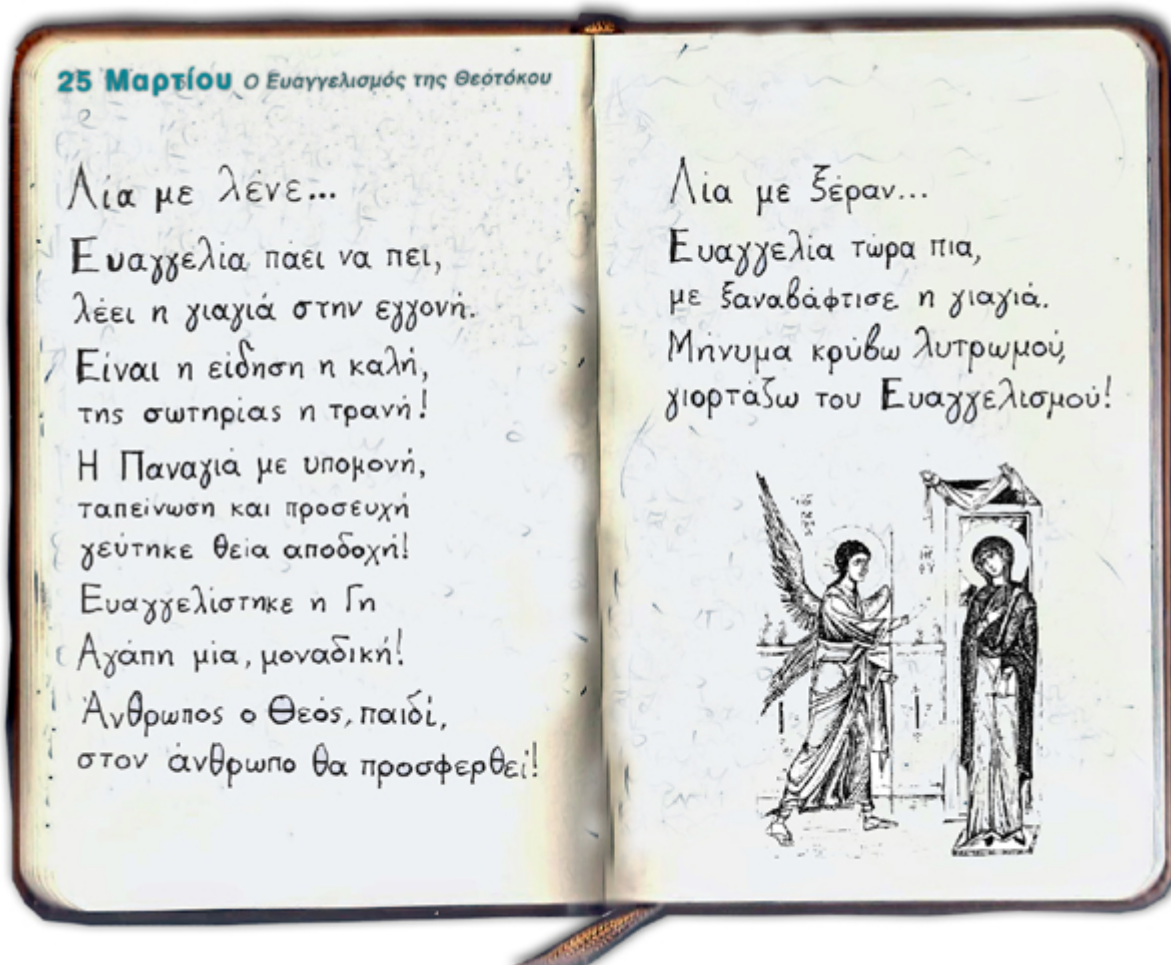 25 Μαρτίου Ο Ευαγγελισμός της Θεοτόκου
Λία με λένε...
Ευαγγελία πάει να πει,
λέει η γιαγιά στην εγγονή.
Είναι η είδηση η καλή,
της σωτηρίας η τρανή!
Η Παναγιά με υπομονή,
ταπείνωση και προσευχή
γεύτηκε θεία αποδοχή!
Ευαγγελίστηκε η Γη
Αγάπη μία, μοναδική!
Άνθρωπος ο Θεός, παιδί,
στον άνθρωπο θα προσφερθεί!
Λία με ξέραν...
Ευαγγελία τώρα πια,
με ξαναβάφτισε η γιαγιά.
Μήνυμα κρύβω λυτρωμού,
γιορτάζω του Ευαγγελισμού!